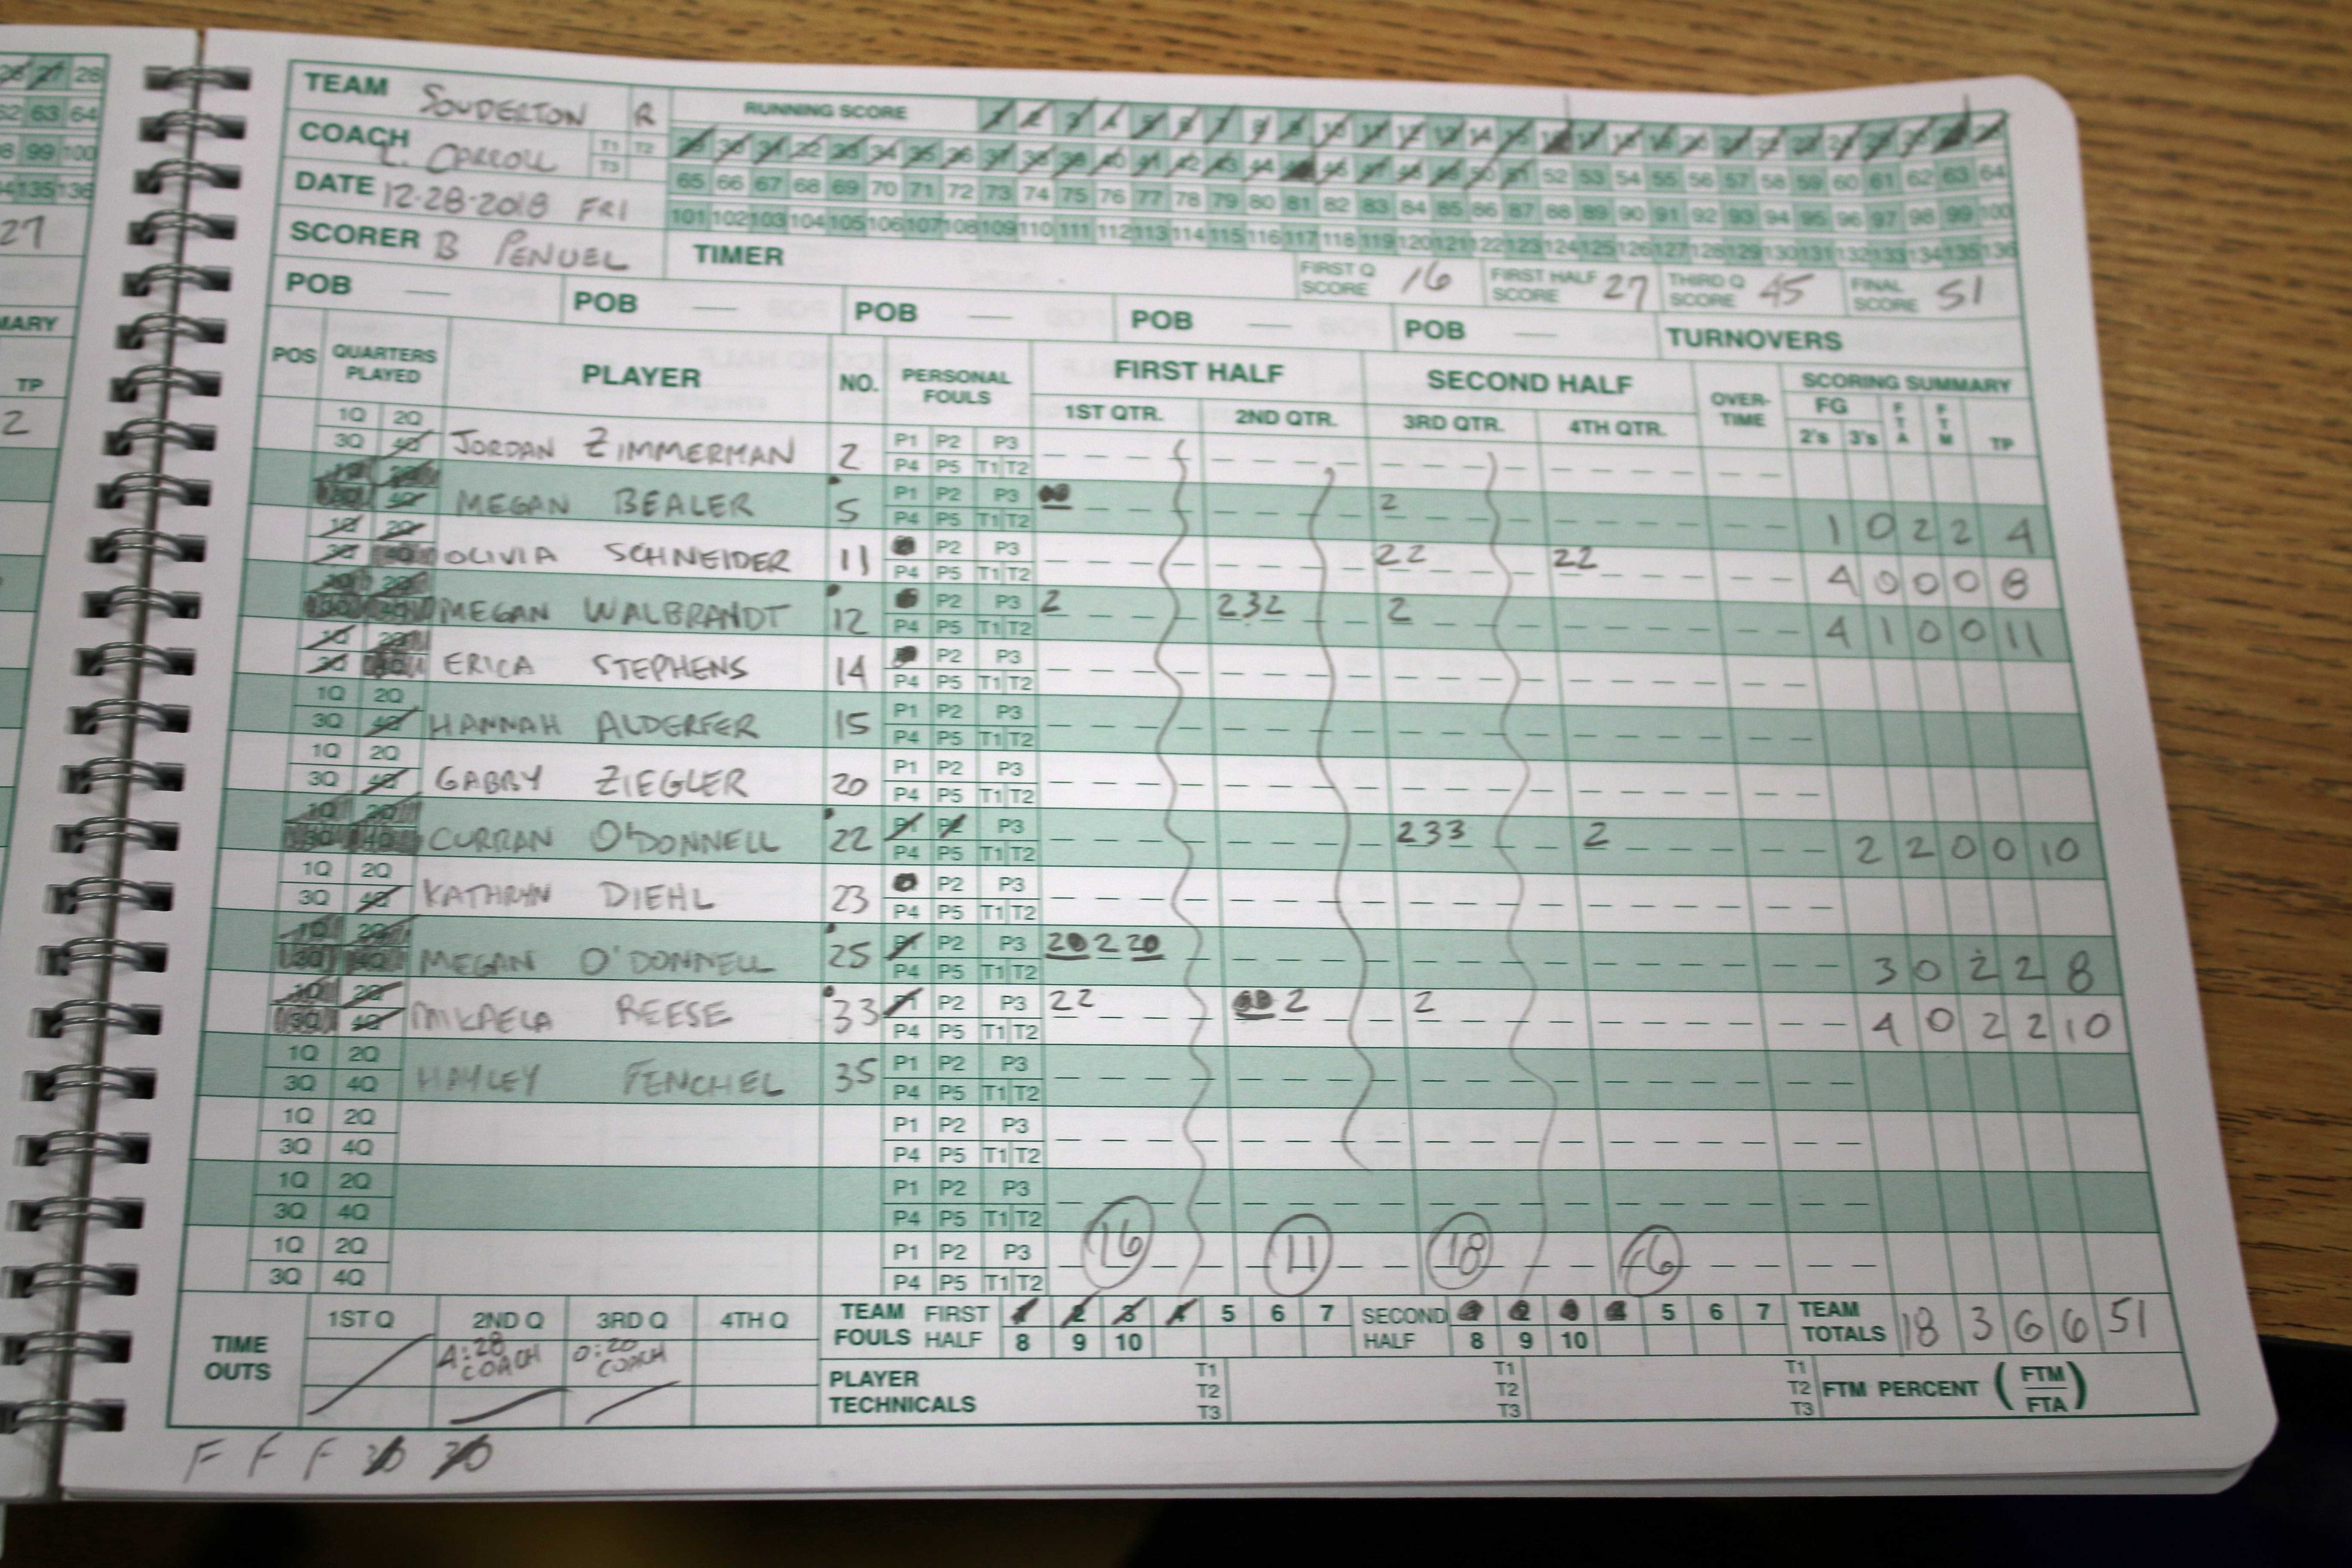 TEAM SOUDERTON R RUNNING SCORE
COACH L. CARROLL T1 T2 T3
65 66 67 68 69 70 71 72 73 74 75 76 77 78 79 80 81 82 83 84 85 86 87 88 89 90 91 92 93 94 95 96 97 98 99 100
DATE 12-28-2018 FRI
101 102 103 104 105 106 107 108 109 110 111 112 113 114 115 116 117 118 119 120 121 122 123 124 125 126 127 128 129 130 131 132 133 134 135 136
SCORER B PENUEL TIMER FIRST Q SCORE 16 FIRST HALF SCORE 27 THIRD Q SCORE 45 FINAL SCORE 51
POB — POB — POB — POB — POB — TURNOVERS
POS QUARTERS PLAYED PLAYER NO. PERSONAL FOULS FIRST HALF SECOND HALF OVER-TIME SCORING SUMMARY
1ST QTR. 2ND QTR. 3RD QTR. 4TH QTR. FG 2's 3's FTA FTM TP
1Q 2Q 3Q 4Q JORDAN ZIMMERMAN 2 P1 P2 P3 P4 P5 T1 T2
1Q 2Q 3Q 4Q MEGAN BEALER 5 P1 P2 P3 P4 P5 T1 T2 2 1 0 2 2 4
1Q 2Q 3Q 4Q OLIVIA SCHNEIDER 11 P2 P3 P4 P5 T1 T2 22 22 4 0 0 0 8
MEGAN WALBRANDT 12 P2 P3 P4 P5 T1 T2 2 232 2 4 1 0 0 11
1Q 2Q 3Q 4Q ERICA STEPHENS 14 P2 P3 P4 P5 T1 T2
1Q 2Q 3Q 4Q HANNAH ALDERFER 15 P1 P2 P3 P4 P5 T1 T2
1Q 2Q 3Q 4Q GABBY ZIEGLER 20 P1 P2 P3 P4 P5 T1 T2
1Q 2Q 3Q 4Q CURRAN O'DONNELL 22 P1 P2 P3 P4 P5 T1 T2 233 2 2 2 0 0 10
1Q 2Q 3Q 4Q KATHRYN DIEHL 23 P2 P3 P4 P5 T1 T2
1Q 2Q 3Q 4Q MEGAN O'DONNELL 25 P1 P2 P3 P4 P5 T1 T2 2 2 2 3 0 2 2 8
1Q 2Q 3Q 4Q MIKAELA REESE 33 P1 P2 P3 P4 P5 T1 T2 22 2 2 4 0 2 2 10
1Q 2Q 3Q 4Q HAYLEY FENCHEL 35 P1 P2 P3 P4 P5 T1 T2
1Q 2Q 3Q 4Q P1 P2 P3 P4 P5 T1 T2
1Q 2Q 3Q 4Q P1 P2 P3 P4 P5 T1 T2
1Q 2Q 3Q 4Q P1 P2 P3 P4 P5 T1 T2 16 11 18 6
TIME OUTS 1ST Q 2ND Q 4:28 COACH 3RD Q 0:20 COACH 4TH Q
TEAM FOULS FIRST HALF 1 2 3 4 5 6 7 8 9 10 SECOND HALF 1 2 3 4 5 6 7 8 9 10 TEAM TOTALS 18 3 6 6 51
PLAYER TECHNICALS T1 T2 T3 T1 T2 T3 T1 T2 T3 FTM PERCENT (FTM/FTA)
F F F 30 30
28
62 63 64
98 99 100
134 135 136
27
TP
2